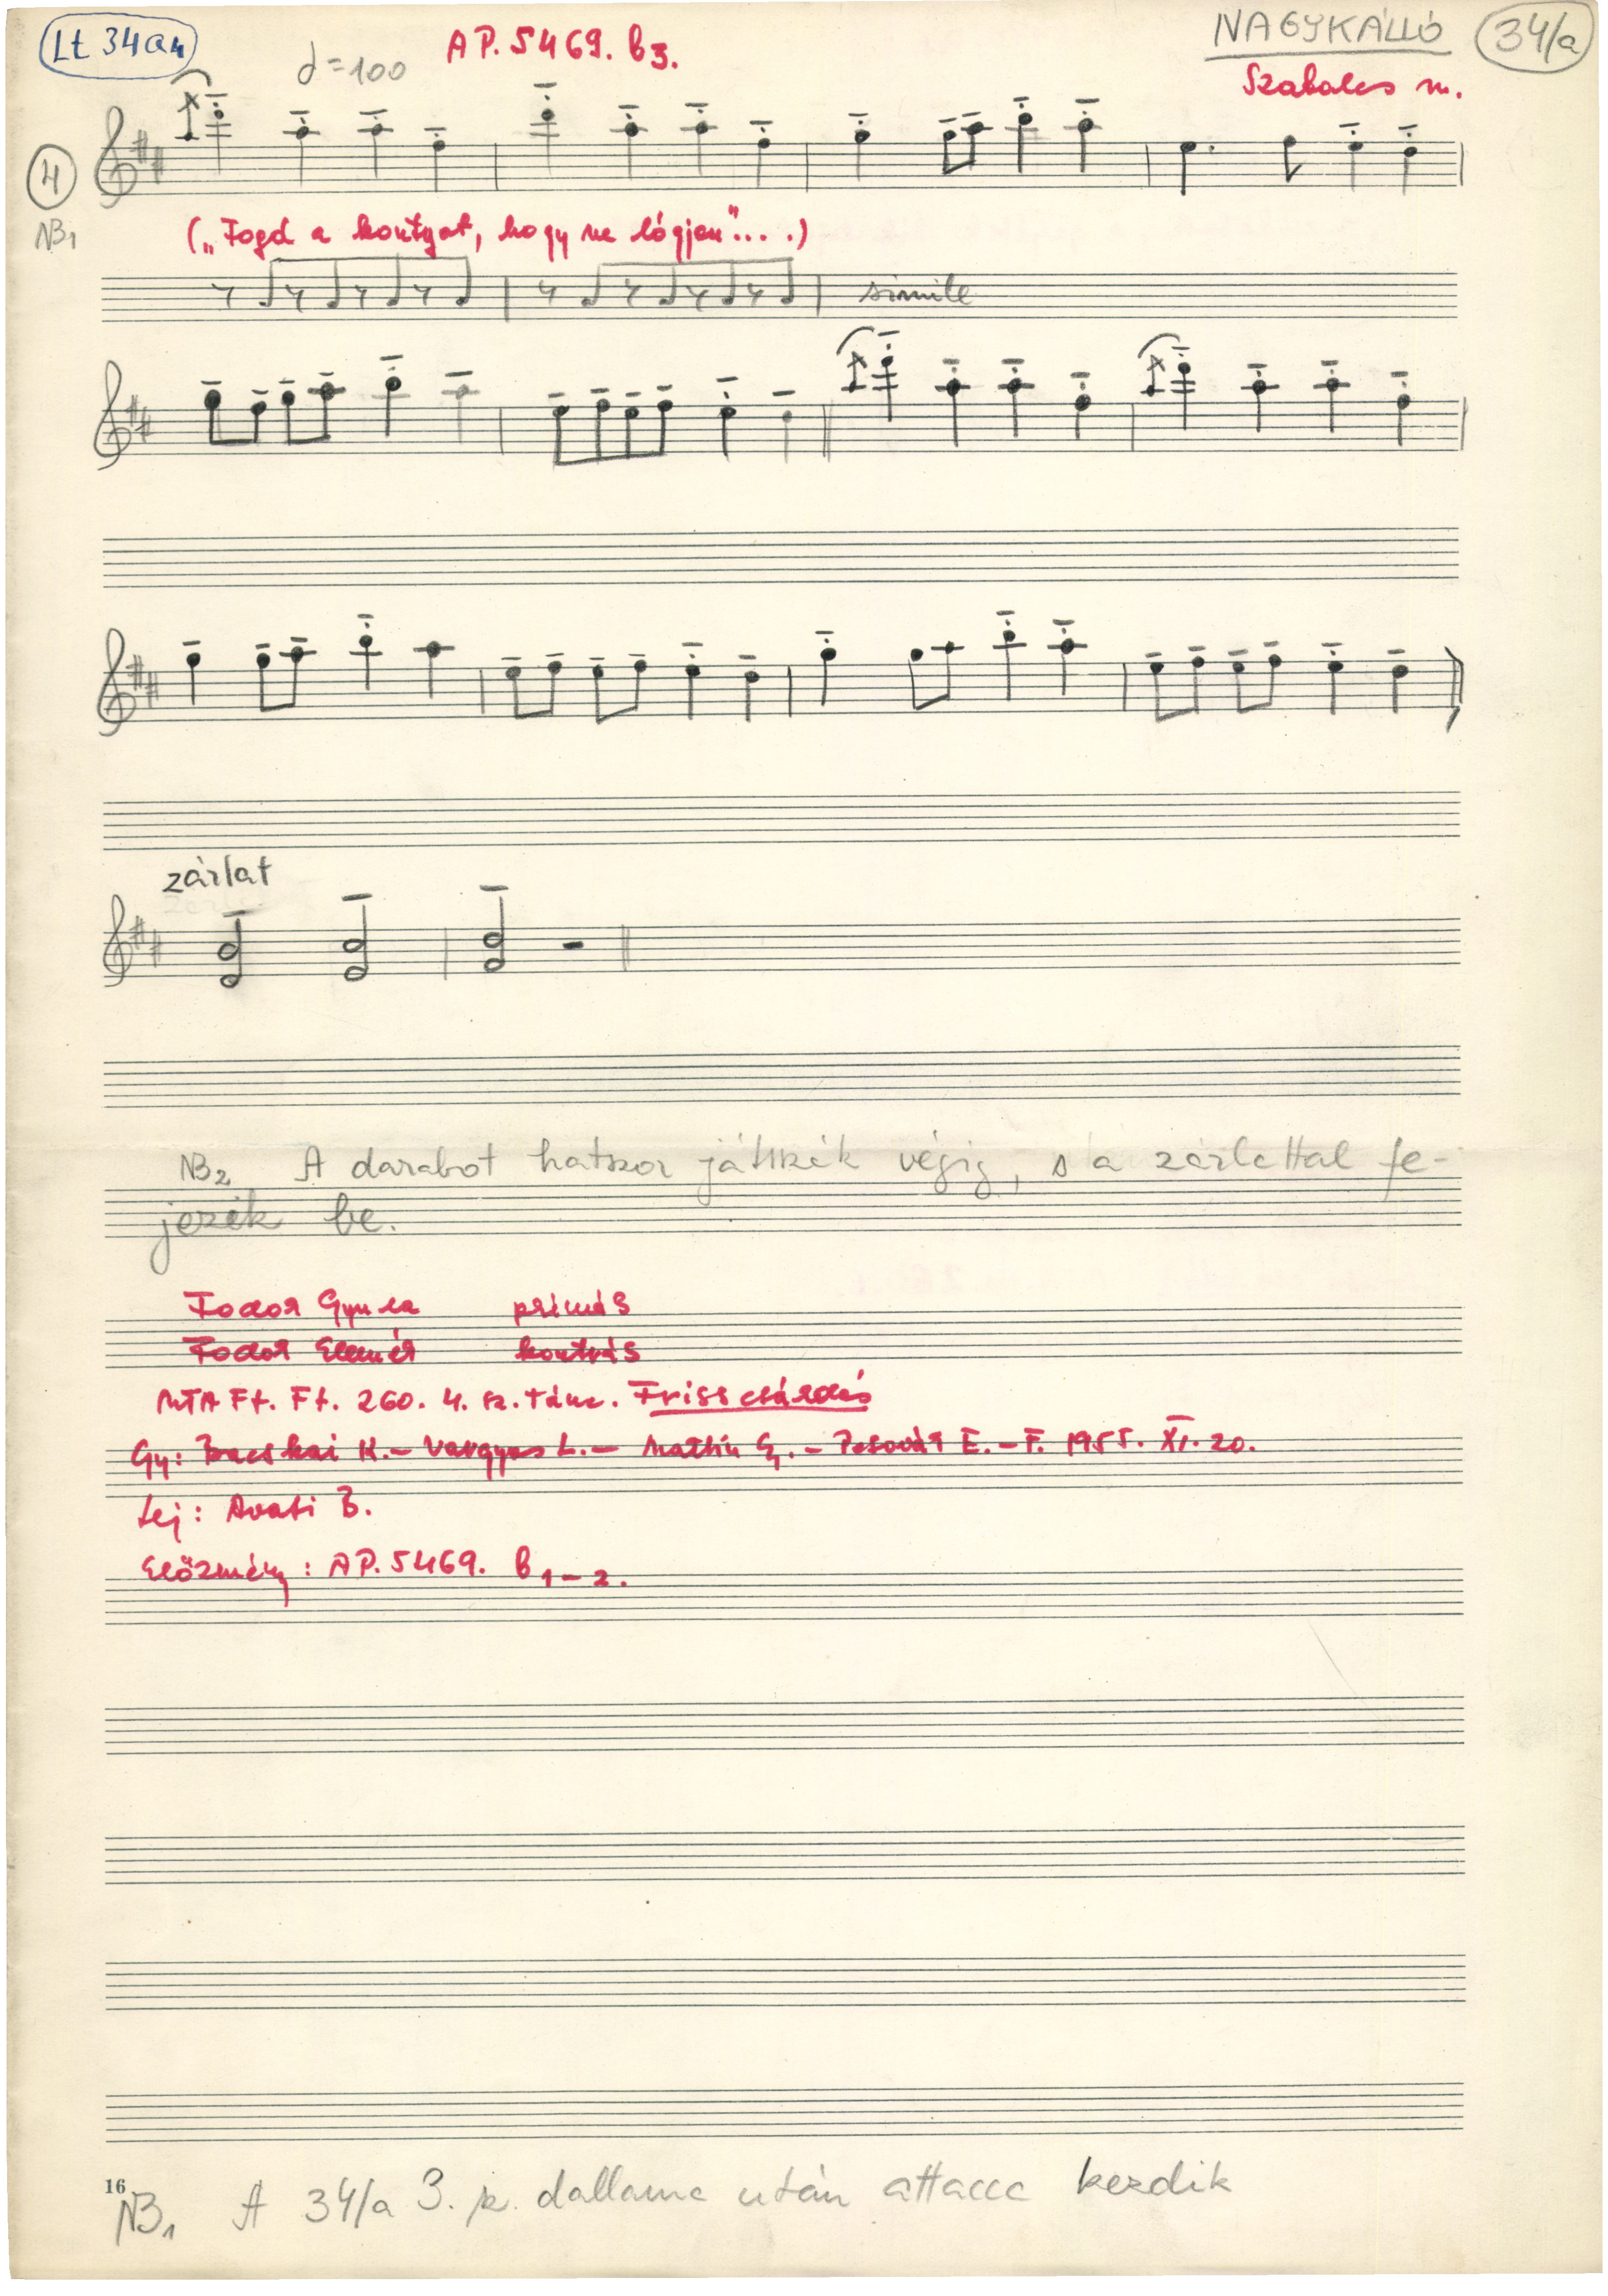 Lt 34a4
AP. 5469. b3.
NAGYKÁLLÓ
34/a
=100
Szabolcs m.
4
NB1
(„Fogd a kontyat, hogy ne lógjon"....)
simile
zárlat
NB2 A darabot hatszor játszák végig, s a zárlattal fe-
jezik be.
Fodor Gyula prímás
Fodor Elemér kontrás
MTA Ft. Ft. 260. 4. sz. tánc. Friss csárdás
Gy: Bacskai K. – Vargyas L. – Martin Gy. – Pesovár E. – F. 1955. XI. 20.
Lej: Avasi B.
Előzmény: AP. 5469. b1–2.
16
NB1 A 34/a 3. sz. dallama után attacca kezdik